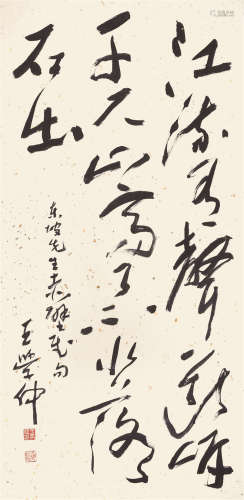 江流有聲斷岸
千尺山高月小水落
石出
东坡先生赤壁賦句
王學仲